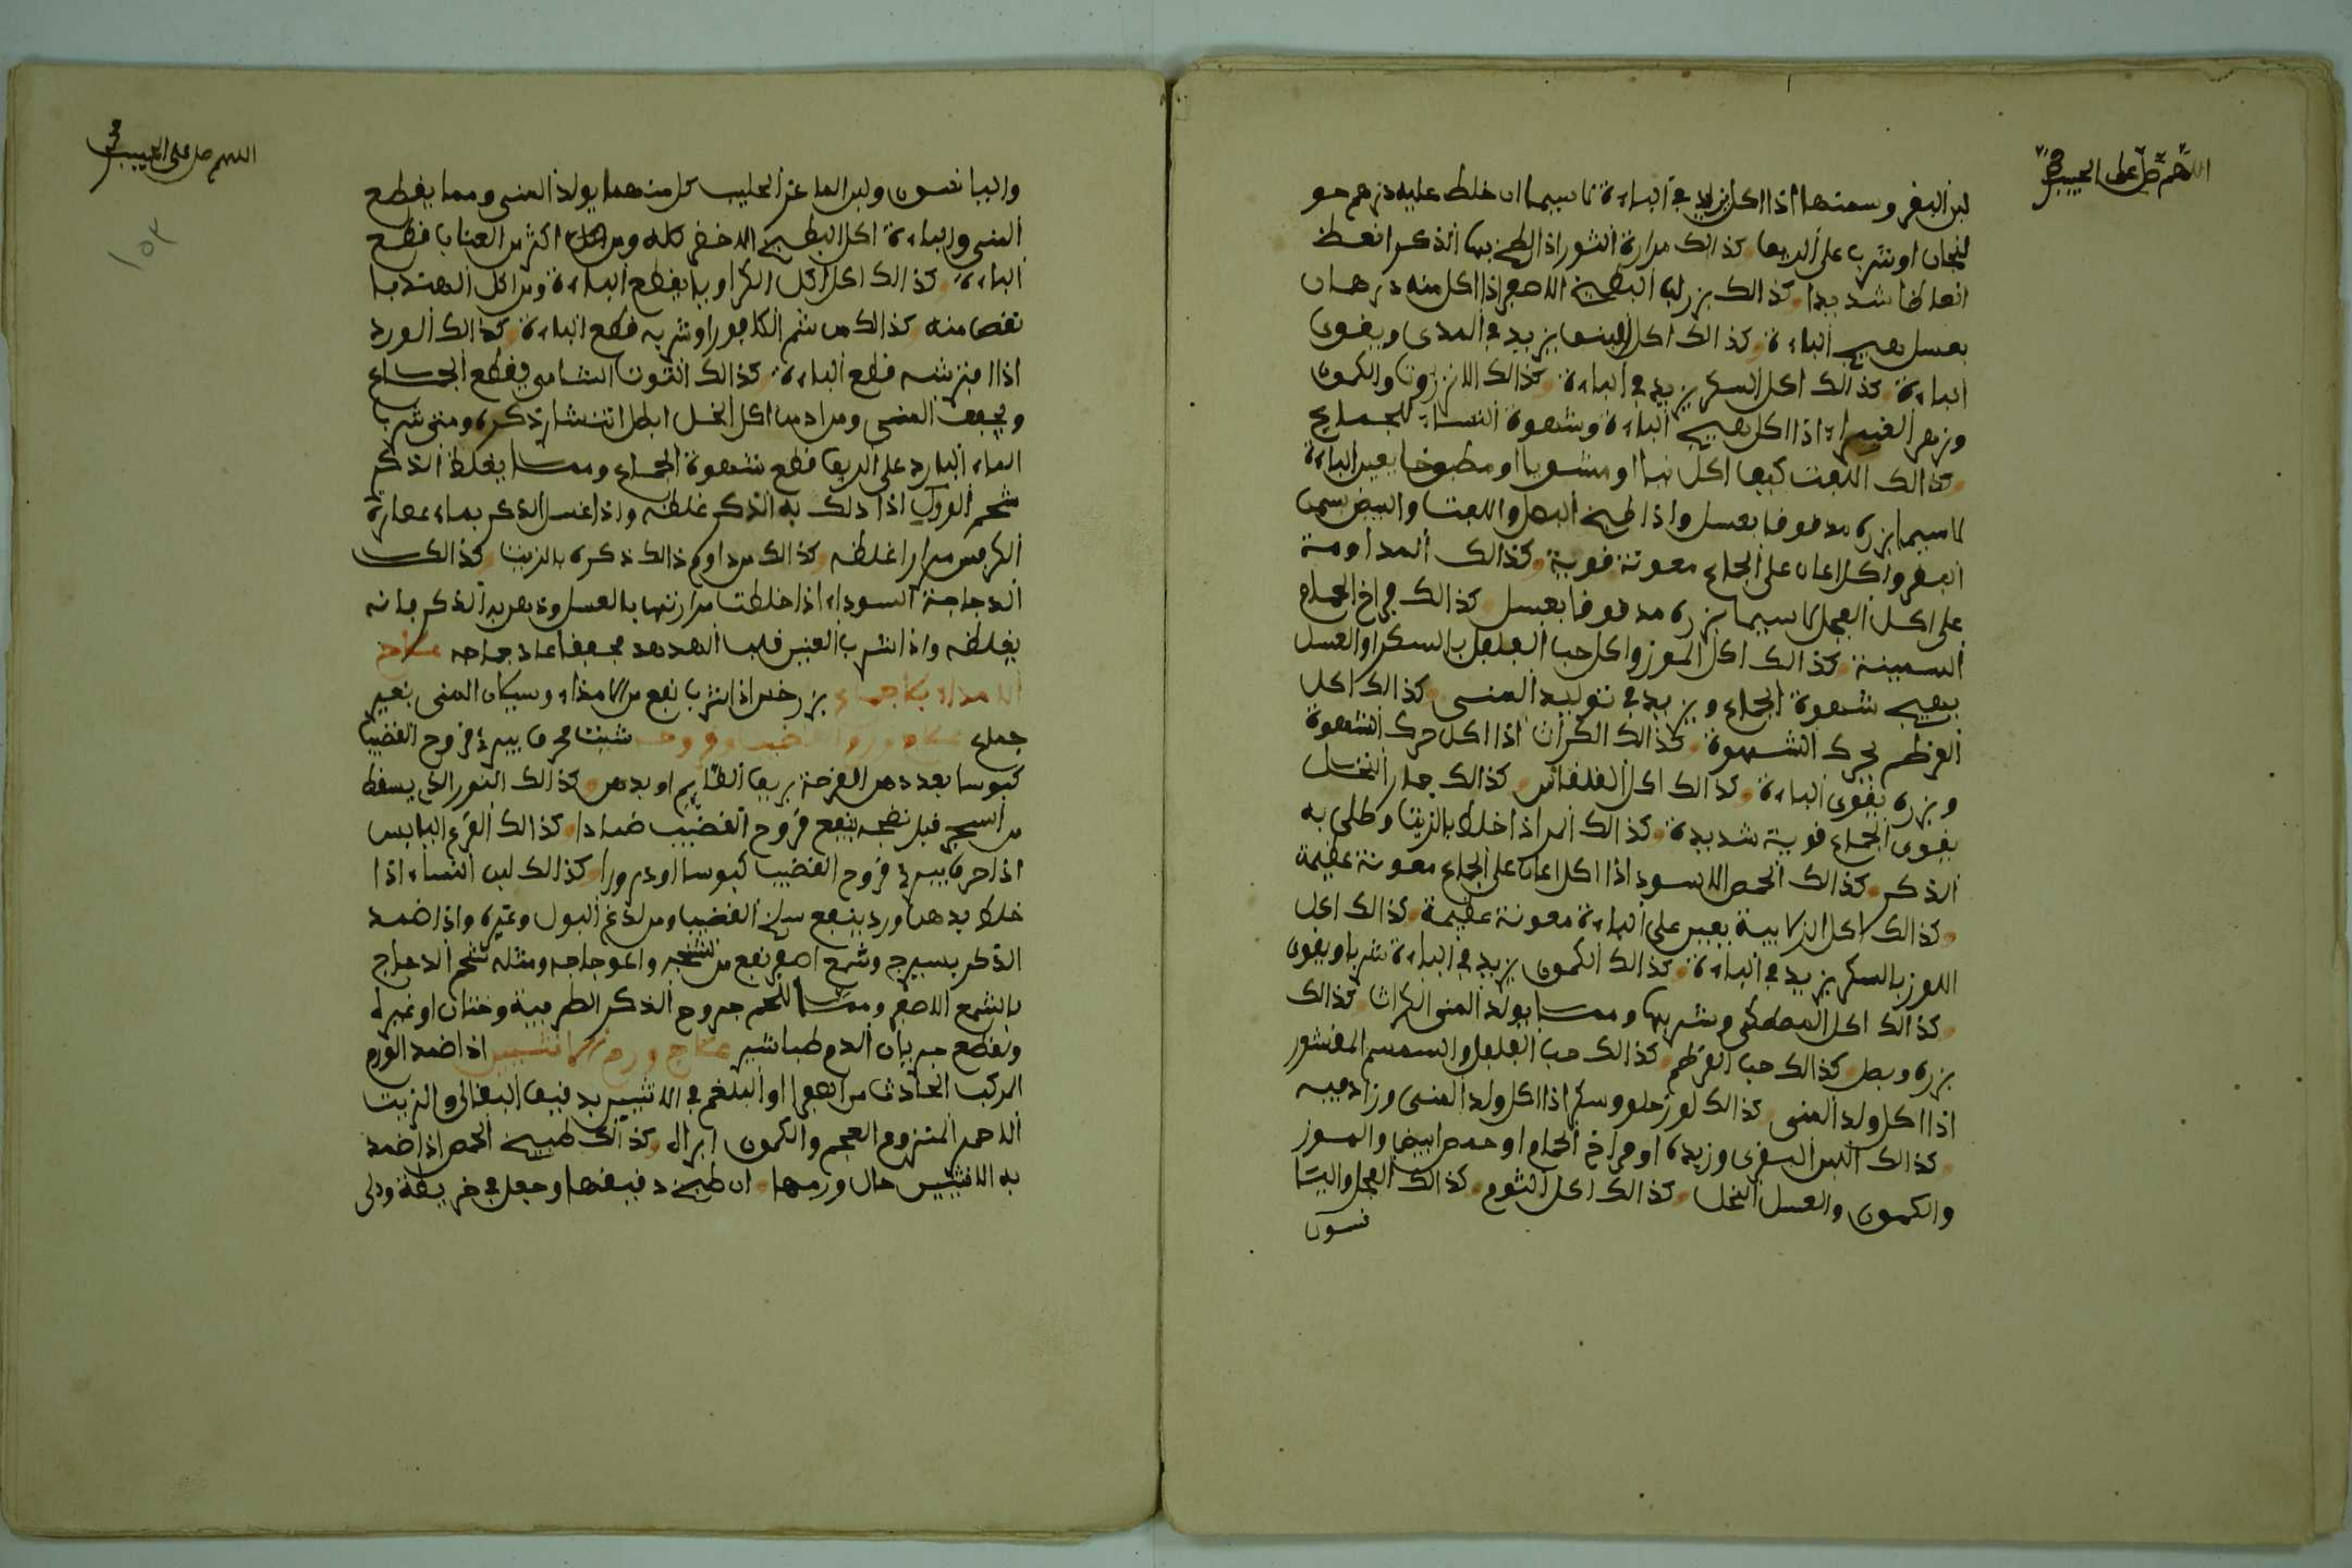 اللهم صل على الحبيب
لبن البقر وسمنها اذا اكل يزيد في الباءة لاسيما ان خلط عليه درهم خو
لنجان او شرب على الريق كذالك مرارة الثور اذا لطخ بها الذكر انعظ
انعاظا شديدا كذالك بزر لب البطيخ الاصفر اذا اكل منه درهمان
بعسل يهيج الباءة كذالك اكل يزيد في المذي ويقوي
الباءة كذالك اكل السكر يزيد في الباءة كذالك والكمون
وزهر الغبيراء اذا اكل هيج الباءة وشهوة النساء للجماع
كذالك اللفت كيف اكل نيا او مشويا او مطبوخا يعين الباءة
لاسيما بزره مدقوقا بعسل واذا طبخ البصل واللفت والبيض بسمن
البقر واكل اعان على الجماع معونة قوية كذالك المداومة
على اكل الفجل لاسيما بزره مدقوقا بعسل كذالك فراخ الحمام
السمينة كذالك اكل الموز واكل حب الفلفل بالسكر او العسل
يهيج شهوة الجماع ويزيد في توليد المني كذالك اكل
القرطم يحرك الشهوة كذالك الكراث اذا اكل حرك الشهوة
وبزره يقوي الباءة كذالك اكل القلقاس كذالك جمار النخل
يقوي الجماع قوية شديدة كذالك المر اذا خلط بالزيت وطلي به
الذكر كذالك الحمص الاسود اذا اكل اعان على الجماع معونة عظيمة
كذالك اكل الزلابية يعين على الباءة معونة عظيمة كذالك اكل
اللوز بالسكر يزيد في الباءة كذالك الكمون يزيد في الباءة شربا ويقوي
كذالك اكل المصطكى وشربها ومما يولد المني الكراث كذالك
بزره وبصل كذالك حب القرطم كذالك حب الفلفل والسمسم المقشور
اذا اكل ولد المني كذالك لوز حلو وسكر اذا اكل ولد المني وزاد فيه
كذالك اللبن البقري وزبده او فراخ الحمام او حمص ابيض والموز
والكمون والعسل النحل كذالك اكل الثوم كذالك الفجل واليا
نسون
اللهم صل على الحبيب
١٥٣
واليانسون ولبن الماعز الحليب كل منهما يولد المني ومما يقطع
المني والباءة اكل البطيخ الاخضر كله ومن اكل اكثر من العناب قطع
الباءة كذالك اكل الكراويا يقطع الباءة ومن اكل الهندبا
نقص منه كذالك من شم الكافور او شربه قطع الباءة كذالك الورد
اذا افترشه قطع الباءة كذالك التوت الشامي يقطع الجماع
ويجفف المني ومن ادمن اكل الخل ابطل انتشار ذكره ومتى شرب
الماء البارد على الريق قطع شهوة الجماع ومما يغلظ الذكر
شحم الورل اذا دلك به الذكر غلظه واذا غسل الذكر بماء عصارة
الكرفس مرارا غلظه كذالك من داوم ذالك ذكره بالزيت كذالك
الدجاجة السوداء اذا خلطت مرارتها بالعسل ودهن به الذكر فانه
يغلظه واذا شرب العنين قلب الهدهد مجففا عاد جماعه علاج
الامذاء بلا جماع بزر خس اذا شرب نفع من الامذاء وسيلان المني بغير
جماع علاج ورم القضيب وقروحه شبت محرق يبري قروح القضيب
كبوسا بعد دهن القرحة بريق الصايم او بدهن كذالك النور الذي يسقط
من الشجر قبل نضجه ينفع قروح القضيب ضمادا كذالك القرع اليابس
اذا احرق يبري قروح القضيب كبوسا او ذرورا كذالك لبن النساء اذا
خلط بدهن ورد ينفع سلخ القضيب ومن لدغ البول وغيره واذا ضمد
الذكر بسيرج وشمع اصفر نفع من تشنجه واعوجاجه ومثله شحم الدجاج
بالشمع الاصفر ومما يلحم جروح الذكر الطرية وختان او غيره
ولقطع جريان الدم طباشير علاج ورم الانثيين اذا ضمد الورم
المركب الحادث من الصفرا او البلغم في الانثيين بدقيق الباقلا والزبيب
الاحمر المنزوع العجم والكمون ابراه كذالك طبيخ الحمص اذا ضمد
به الانثيين حلل ورمها ان طبخ دقيقها وجعل في خريطة ودلي